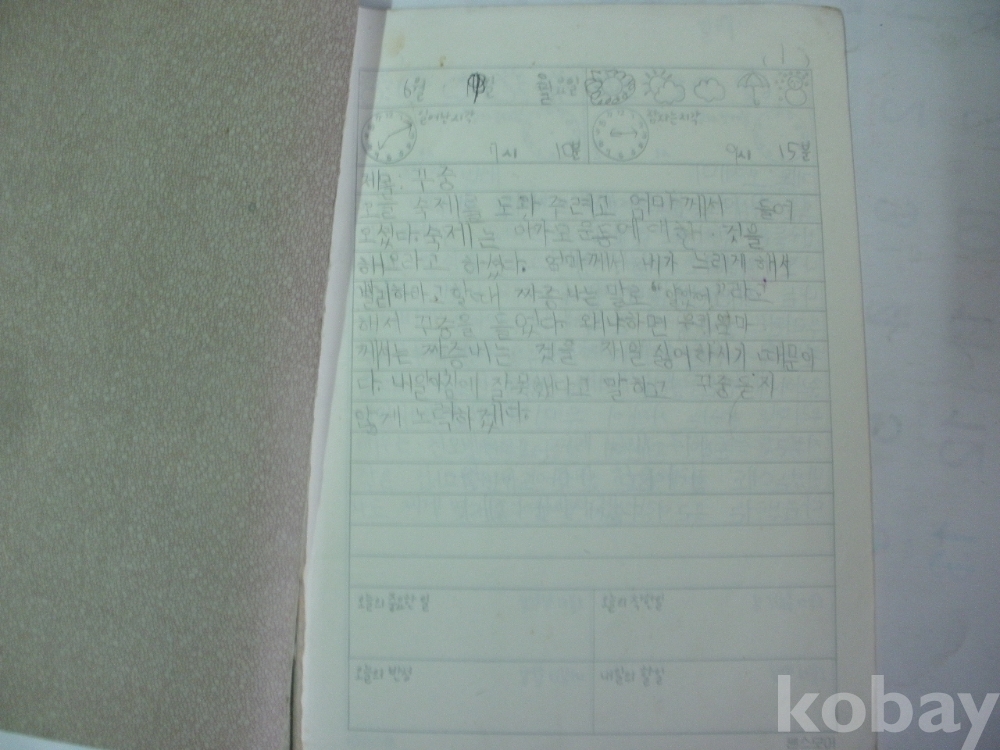 (1)
6월 일 월요일
일어난시각 잠자는시각
7시 10분 9시 15분
제목. 꾸중
오늘 숙제를 도와 주려고 엄마께서 들어
오셨다. 숙제는 에 대한 것을
해오라고 하셨다. 엄마께서 내가 느리게 해서
빨리하라고 할때 짜증나는 말로 라고
해서 꾸중을 들었다. 왜냐하면 우리엄마
께서는 짜증내는 것을 제일 싫어하시기 때문이
다. 내일아침에 잘못했다고 말하고 꾸중듣지
않게 노력하겠다.
오늘의 중요한 일 오늘의 착한일
오늘의 반성 내일의 할일
kobay